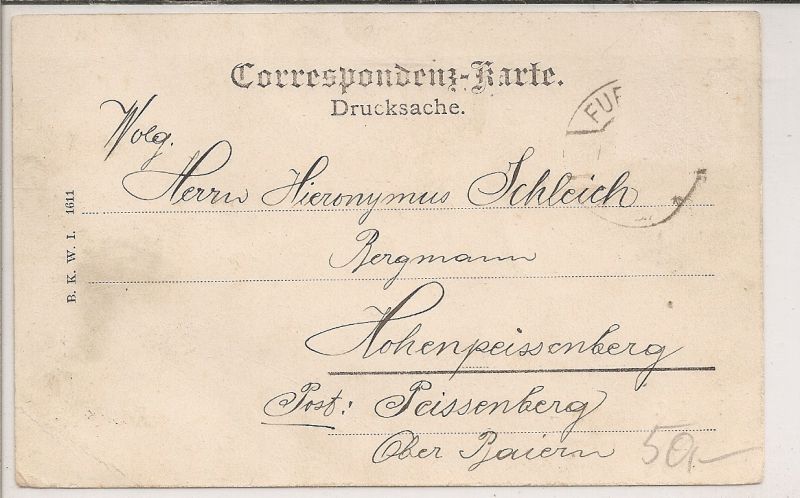 Correspondenz-Karte.
Drucksache.
FUE
Wolg.
Herrn Hieronymus Schleich
Bergmann
Hohenpeissenberg
Post: Peissenberg
Ober Baiern
50,-
B. K. W. I. 1611